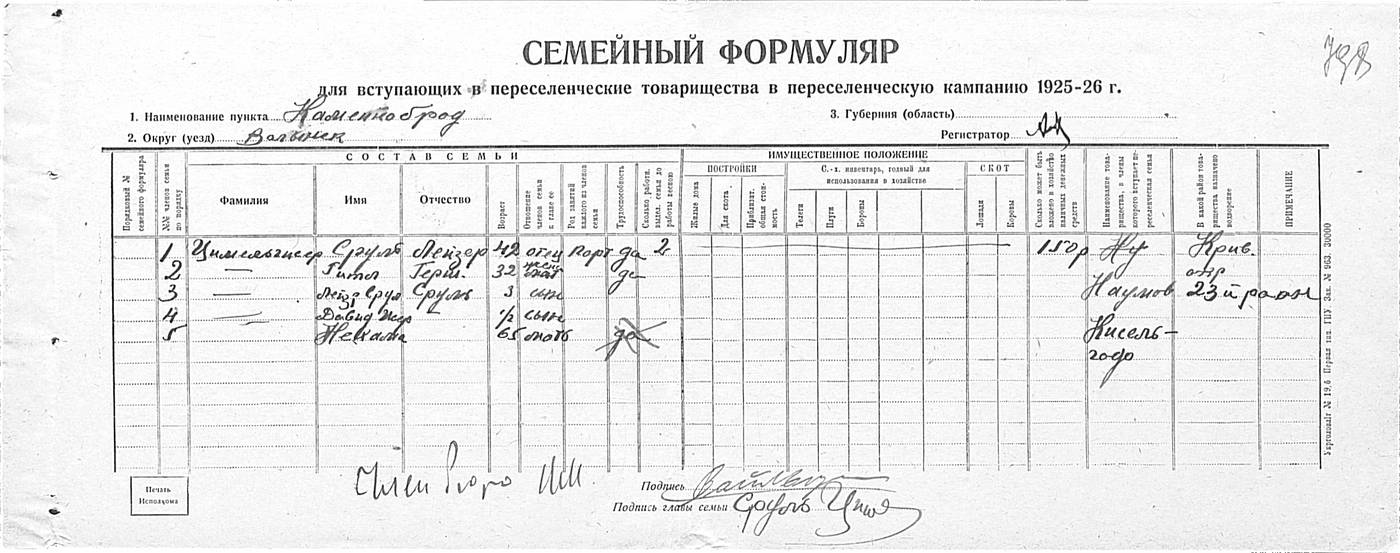 СЕМЕЙНЫЙ ФОРМУЛЯР
798
для вступающих в переселенческие товарищества в переселенческую кампанию 1925-26 г.
1. Наименование пункта Каменноброд
3. Губерния (область)
2. Округ (уезд) Волынск
Регистратор
СОСТАВ СЕМЬИ
ИМУЩЕСТВЕННОЕ ПОЛОЖЕНИЕ
Порядковый № семейного формуляра
№№ членов семьи по порядку
Фамилия
Имя
Отчество
Возраст
Отношение членов семьи к главе ее
Род занятий каждого из членов семьи
Трудоспособность
Сколько работн. выдел. семья до работы весною
ПОСТРОЙКИ
Жилые дома
Для скота
Приблизит. общая стоимость
С.-х. инвентарь, годный для использования в хозяйстве
Телеги
Плуги
Бороны
СКОТ
Лошади
Коровы
Сколько может быть вложено в хозяйство наличных денежных средств
Наименование товарищества, в члены которого вступает переселенческая семья
В какой район товарищества, назначено водворение
ПРИМЕЧАНИЕ
1 Сруль Лейзер 42 отец порт да 2 150р Ну Крив.
2 — Гитл Герш. 32 жена да отр
3 — Сруль 3 сын Наумов 23й раон
4 — Давид 1/2 сын
5 Нехама 65 мать да Кисель-
гофо
Укрголовлiт № 19,6 Первая тип. ГПУ Зак. № 963. 30000
Член Бюро
Печать Исполкома
Подпись
Подпись главы семьи Сруль Цим